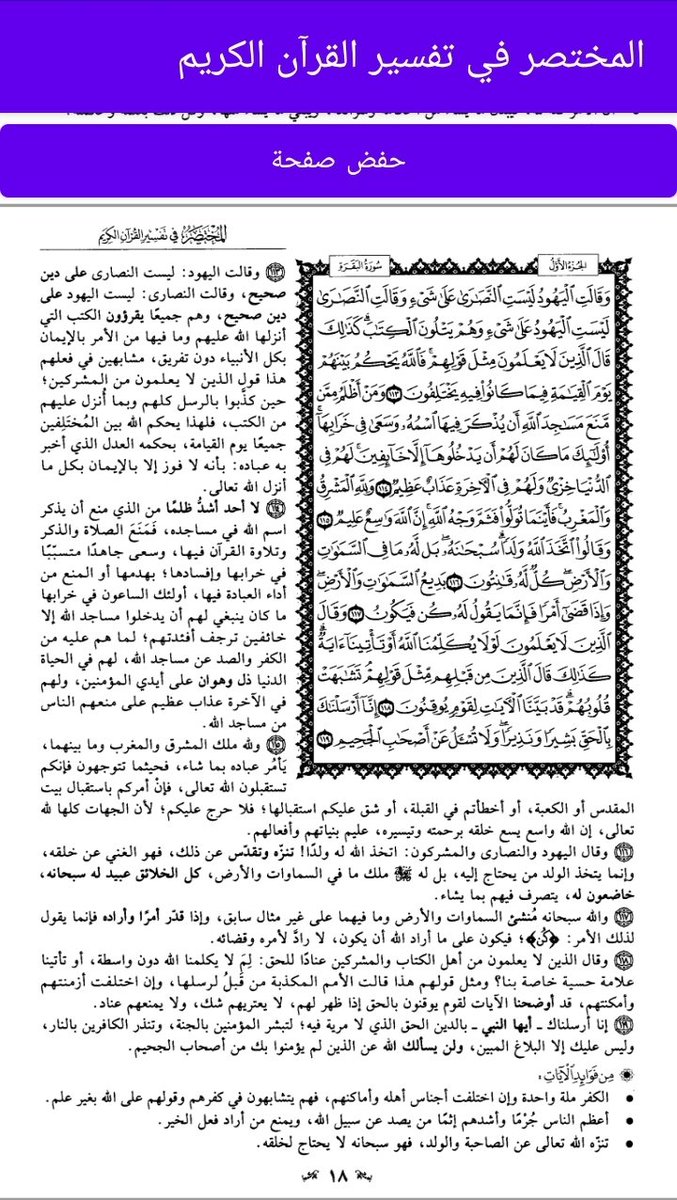 المختصر في تفسير القرآن الكريم
حفض صفحة
المختصر في تفسير القرآن الكريم
الجزء الأول
سورة البقرة
وَقَالَتِ ٱلۡيَهُودُ لَيۡسَتِ ٱلنَّصَٰرَىٰ عَلَىٰ شَيۡءٖ وَقَالَتِ ٱلنَّصَٰرَىٰ
لَيۡسَتِ ٱلۡيَهُودُ عَلَىٰ شَيۡءٖ وَهُمۡ يَتۡلُونَ ٱلۡكِتَٰبَۗ كَذَٰلِكَ
قَالَ ٱلَّذِينَ لَا يَعۡلَمُونَ مِثۡلَ قَوۡلِهِمۡۚ فَٱللَّهُ يَحۡكُمُ بَيۡنَهُمۡ
يَوۡمَ ٱلۡقِيَٰمَةِ فِيمَا كَانُواْ فِيهِ يَخۡتَلِفُونَ ١١٣ وَمَنۡ أَظۡلَمُ مِمَّن
مَّنَعَ مَسَٰجِدَ ٱللَّهِ أَن يُذۡكَرَ فِيهَا ٱسۡمُهُۥ وَسَعَىٰ فِي خَرَابِهَآۚ
أُوْلَٰٓئِكَ مَا كَانَ لَهُمۡ أَن يَدۡخُلُوهَآ إِلَّا خَآئِفِينَۚ لَهُمۡ فِي
ٱلدُّنۡيَا خِزۡيٞ وَلَهُمۡ فِي ٱلۡأٓخِرَةِ عَذَابٌ عَظِيمٞ ١١٤ وَلِلَّهِ ٱلۡمَشۡرِقُ
وَٱلۡمَغۡرِبُۚ فَأَيۡنَمَا تُوَلُّواْ فَثَمَّ وَجۡهُ ٱللَّهِۚ إِنَّ ٱللَّهَ وَٰسِعٌ عَلِيمٞ ١١٥
وَقَالُواْ ٱتَّخَذَ ٱللَّهُ وَلَدٗاۗ سُبۡحَٰنَهُۥۖ بَل لَّهُۥ مَا فِي ٱلسَّمَٰوَٰتِ
وَٱلۡأَرۡضِۖ كُلّٞ لَّهُۥ قَٰنِتُونَ ١١٦ بَدِيعُ ٱلسَّمَٰوَٰتِ وَٱلۡأَرۡضِۖ
وَإِذَا قَضَىٰٓ أَمۡرٗا فَإِنَّمَا يَقُولُ لَهُۥ كُن فَيَكُونُ ١١٧ وَقَالَ
ٱلَّذِينَ لَا يَعۡلَمُونَ لَوۡلَا يُكَلِّمُنَا ٱللَّهُ أَوۡ تَأۡتِينَآ ءَايَةٞۗ
كَذَٰلِكَ قَالَ ٱلَّذِينَ مِن قَبۡلِهِم مِّثۡلَ قَوۡلِهِمۡۘ تَشَٰبَهَتۡ
قُلُوبُهُمۡۗ قَدۡ بَيَّنَّا ٱلۡأٓيَٰتِ لِقَوۡمٖ يُوقِنُونَ ١١٨ إِنَّآ أَرۡسَلۡنَٰكَ
بِٱلۡحَقِّ بَشِيرٗا وَنَذِيرٗاۖ وَلَا تُسۡـَٔلُ عَنۡ أَصۡحَٰبِ ٱلۡجَحِيمِ ١١٩
١١٣ وقالت اليهود: ليست النصارى على دين
صحيح، وقالت النصارى: ليست اليهود على
دين صحيح، وهم جميعًا يقرؤون الكتب التي
أنزلها الله عليهم وما فيها من الأمر بالإيمان
بكل الأنبياء دون تفريق، مشابهين في فعلهم
هذا قول الذين لا يعلمون من المشركين؛
حين كذَّبوا بالرسل كلهم وبما أُنزل عليهم
من الكتب، فلهذا يحكم الله بين المختلفين
جميعًا يوم القيامة، بحكمه العدل الذي أخبر
به عباده: بأنه لا فوز إلا بالإيمان بكل ما
أنزل الله تعالى.
١١٤ لا أحد أشدُّ ظلمًا من الذي منع أن يذكر
اسم الله في مساجده، فَمَنَعَ الصلاة والذكر
وتلاوة القرآن فيها، وسعى جاهدًا متسبّبًا
في خرابها وإفسادها؛ بهدمها أو المنع من
أداء العبادة فيها، أولئك الساعون في خرابها
ما كان ينبغي لهم أن يدخلوا مساجد الله إلا
خائفين ترجف أفئدتهم؛ لما هم عليه من
الكفر والصد عن مساجد الله، لهم في الحياة
الدنيا ذل وهوان على أيدي المؤمنين، ولهم
في الآخرة عذاب عظيم على منعهم الناس
من مساجد الله.
١١٥ ولله ملك المشرق والمغرب وما بينهما،
يَأمُر عباده بما شاء، فحيثما تتوجهون فإنكم
تستقبلون الله تعالى، فإنْ أمركم باستقبال بيت
المقدس أو الكعبة، أو أخطأتم في القبلة، أو شق عليكم استقبالها؛ فلا حرج عليكم؛ لأن الجهات كلها لله
تعالى، إن الله واسع يسع خلقه برحمته وتيسيره، عليم بنياتهم وأفعالهم.
١١٦ وقال اليهود والنصارى والمشركون: اتخذ الله له ولدًا! تنزّه وتقدّس عن ذلك، فهو الغني عن خلقه،
وإنما يتخذ الولد من يحتاج إليه، بل له ملك ما في السماوات والأرض، كل الخلائق عبيد له سبحانه،
خاضعون له، يتصرف فيهم بما يشاء.
١١٧ والله سبحانه مُنشئ السماوات والأرض وما فيهما على غير مثال سابق، وإذا قدّر أمرًا وأراده فإنما يقول
لذلك الأمر: ﴿كُن﴾؛ فيكون على ما أراد الله أن يكون، لا رادَّ لأمره وقضائه.
١١٨ وقال الذين لا يعلمون من أهل الكتاب والمشركين عنادًا للحق: لِمَ لا يكلمنا الله دون واسطة، أو تأتينا
علامة حسية خاصة بنا؟ ومثل قولهم هذا قالت الأمم المكذبة من قَبلُ لرسلها، وإن اختلفت أزمنتهم
وأمكنتهم، قد أوضحنا الآيات لقوم يوقنون بالحق إذا ظهر لهم، لا يعتريهم شك، ولا يمنعهم عناد.
١١٩ إنا أرسلناك ـ أيها النبي ـ بالدين الحق الذي لا مرية فيه؛ لتبشر المؤمنين بالجنة، وتنذر الكافرين بالنار،
وليس عليك إلا البلاغ المبين، ولن يسألك الله عن الذين لم يؤمنوا بك من أصحاب الجحيم.
من فوائد الآيات:
• الكفر ملة واحدة وإن اختلفت أجناس أهله وأماكنهم، فهم يتشابهون في كفرهم وقولهم على الله بغير علم.
• أعظم الناس جُرْمًا وأشدهم إثمًا من يصد عن سبيل الله، ويمنع من أراد فعل الخير.
• تنزّه الله تعالى عن الصاحبة والولد، فهو سبحانه لا يحتاج لخلقه.
١٨